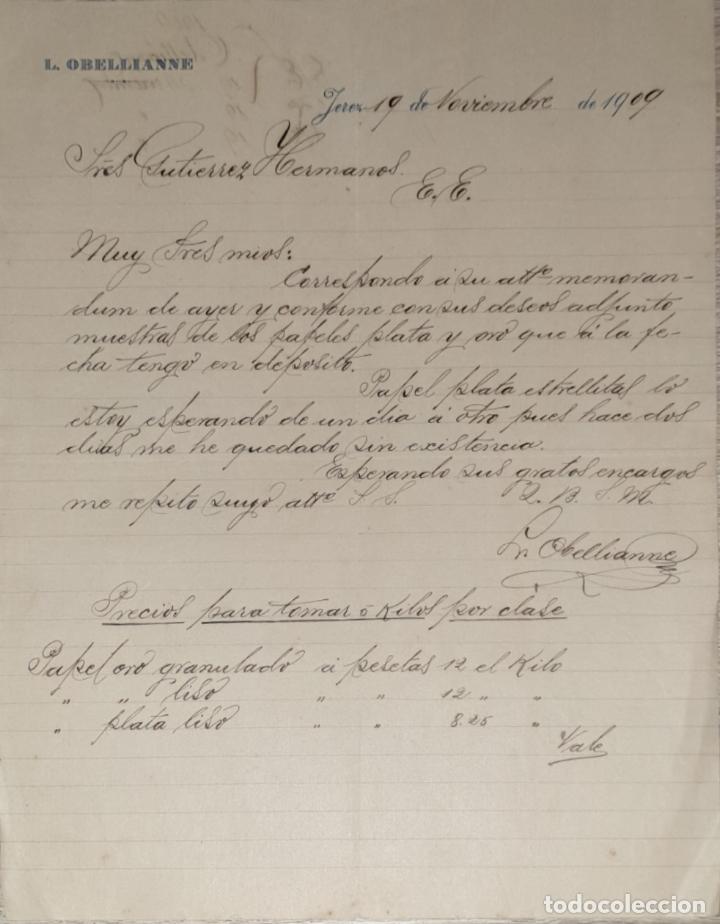 L. OBELLIANNE
Jerez 19 de Noviembre de 1909
Sres Gutierrez Hermanos.
E. E.
Muy Sres mios:
Correspondo á su attº memoran-
dum de ayer y conforme con sus deseos adjunto
muestras de los papeles plata y oro que á la fe-
cha tengo en déposito.
Papel plata estrellitas lo
estoy esperando de un dia á otro pues hace dos
dias me he quedado sin existencia.
Esperando sus gratos encargos
me repito suyo attº S. S. Q. B. S. M.
Obellianne
Precios para tomar 5 Kilos por clase
Papel oro granulado á pesetas 12 el Kilo
" " liso " " 12 " "
" plata liso " " 8.25 "
Vale
todocoleccion